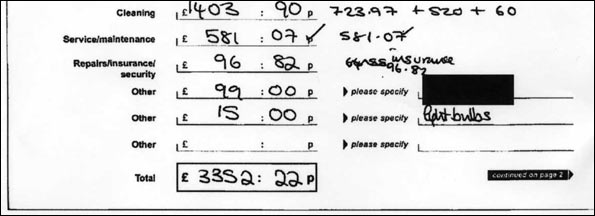 Cleaning £1403 : 90 p 723.97 + 520 + 60
Service/maintenance £ 581 : 07 p 581.07
Repairs/insurance/ security £ 96 : 82 p insurance 96.82
Other £ 99 : 00 p please specify
Other £ 15 : 00 p please specify light bulbs
Other £ : p please specify
Total £ 3352 : 22 p continued on page 2